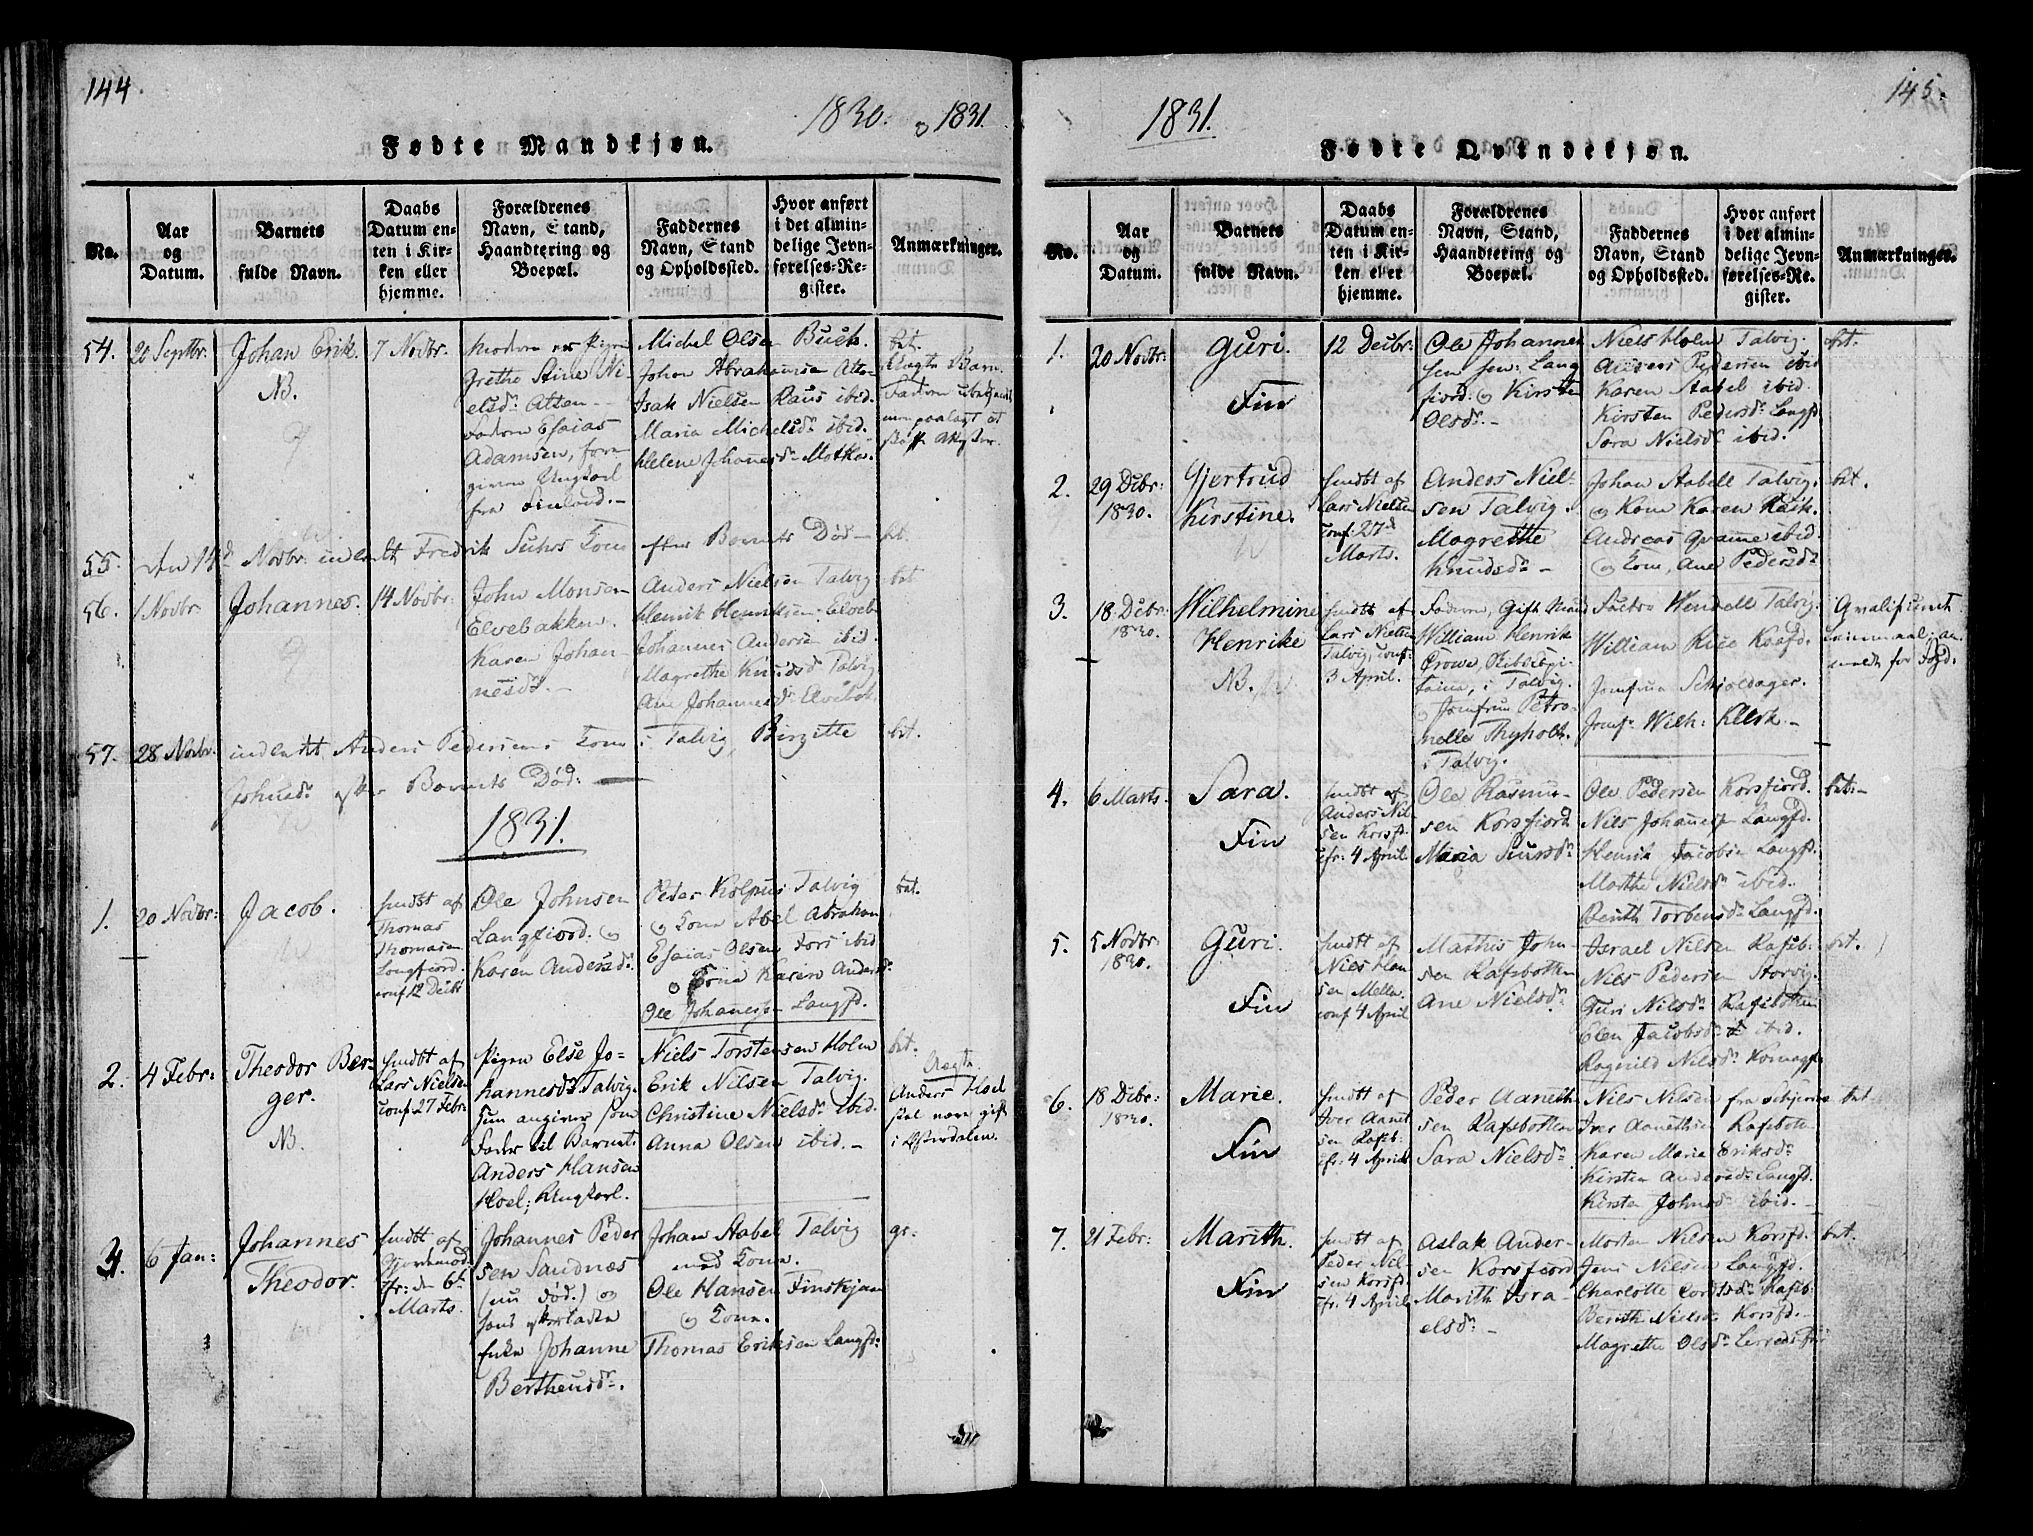 144.
1830. & 1831.
Fødte Mandkjøn.
No.
Aar
og
Datum.
Barnets
fulde Navn.
Daabs
Datum en-
ten i Kir-
ken eller
hjemme.
Forældrenes
Navn, Stand,
Haandtering og
Boepæl.
Faddernes
Navn, Stand
og Opholdssted.
Hvor anført
i det almin-
delige Jevn-
førelses-Re-
gister.
Anmærkninger.
54.
20 Septbr.
Johan Erik.
NB.
7 Novbr.
Moderen er Pigen
Grethe Stine Ni-
elsdr. Alten -
Faderen Esaias
Adamsen, fore-
given Ungkarl
fra Finland. -
Michel Olsen Buck.
Johan Abrahamsen Alten
Isak Nielsen Raus ibid.
Maria Michelsdr. ibid.
Helene Johannesdr. Motka.
bet.
Uægte Barn.
55.
den 14d Novbr. indledt Fredrik Suhrs Kone efter Barnets Død - bet.
56.
1 Novbr
Johannes.
14 Novbr:
John Monsen
Elvebakken.
Karen Johan-
nesdr. -
Anders Nielsen Talvig
Henrik Henriksen Elveb.
Johannes Andersen ibid.
Magrethe Knudsd Talvig
Ane Johannesdr. Elvebak
bet
57.
28 Novbr.
indledt Anders Pedersens Kone i Talvig, Birgitte
Johnsdr. efter Barnets Død: -
bet.
1831.
1.
20 Novbr:
Jacob.
hmdbt af
Thomas
Thomasen
Langfiord.
conf 12 Decbr
Ole Johnsen
Langfiord. &
Karen Andersdr.
Peder Kolpus Talvig
& Kona Abel Abraham
Esaias Olsen Fors ibid
& Kona Karen Andersdr.
Ole Johannesen Langfd.
bet.
2.
4 Febr:
Theodor Ber-
ger.
NB.
hmdbt af
Lars Nielsen
conf 27 Febr.
Pigen Else Jo-
hannesdr. Talvig.
Hun angiver som
Fader til Barnet:
Anders Hansen
Hoel; Ungkarl.
Niels Torstensen Holm
Erik Nilsen Talvig.
Christine Nielsdr. ibid.
Anna Olsen ibid. -
bet.
Uægte
Anders Hoel
skal være gift
i Østerdalen.
3.
6 Jan:
Johannes
Theodor.
hmdbt af
Gjordemod.
cfr: den 6t
Marts.
Johannes Peder
sen Sandnæs
(nu død.) og
hans efterladte
Enke Johanne
Bertheusdr.
Johan Stabel Talvig
med Kona.
Ole Hansen Finskjær
& Kona.
Thomas Eriksen Langfd:
gr.
145.
1831.
Fødte Qvindekjøn.
No.
Aar
og
Datum.
Barnets
fulde Navn.
Daabs
Datum en-
ten i Kir-
ken eller
hjemme.
Forældrenes
Navn, Stand,
Haandtering og
Boepæl.
Faddernes
Navn, Stand
og Opholdssted.
Hvor anført
i det almin-
delige Jevn-
førelses-Re-
gister.
Anmærkninger.
1.
20 Novbr:
Guri.
Fin
12 Decbr:
Ole Johannes
sen sen: Lang
fiord. & Kirsten
Olsdr. -
Niels Holm Talvig.
Anders Pedersen ibid
Karen Stabel ibid.
Kirsten Pedersdr. Langfd
Sara Nielsdr. ibid.
bet.
2.
29 Decbr:
1830.
Gjertrud
Kirstine.
hmdbt af
Lars Nielsen
conf. 27d
Marts.
Anders Niel-
sen Talvig.
Magrethe
Knudsdr -
Johan Stabell Talvig.
& Kone Karen
Andreas Qvanne ibid.
& Kone, Ane Pedersdr.
bet.
3.
18 Decbr:
1830.
Wilhelmine
Henrike
NB.
hmdbt af
Lars Nielsen
Talvig, conf.
3 April.
Faderen, Gift Mand
William Henrik
Crowe, Skibscapi-
taine, i Talvig.
& Jomfrue Petro-
nelle Thyholt.
i Talvig.
Wendell Talvig.
William Rice Kaafd.
Jomfrue Schjeldager.
Jomfr Wilh: Klerk. -
Qvalificeret
meldt for Fogd.
4.
6 Marts.
Sara.
Fin
hmdbt af
Anders Nil
sen Korsfd.
cfr. 4 April
Ole Rasmu-
sen Korsfiord
Maria Siursdr.
Ole Pedersen Korsfiord.
Nils Johannesen Langfd.
Henrik Jacobsen Langfd.
Marthe Nielsdr ibid.
Berith Torbensdr Langfd.
bet. -
5.
5 Novbr:
1830.
Guri.
Fin
hmdbt af
Niels Han
sen Melle.
conf 4 April
Mathis John-
sen Rafsbotten
Ane Nielsdr.
Israel Nilsen Rafsb.
Nils Pedersen Storvig.
Guri Nilsdr. Rafsbotten
Elen Jacobsdr. ibid.
Ragnild Nilsdr. Komagf.
bet.
6.
18 Decbr:
1830.
Marie.
Fin
hmdbt af
Iver Aanet
sen Rafsb:
cfr. 4 April
Peder Aaneth
sen Rafsbotten
Sara Nielsdr.
Nils Nilsen fra Schjerv
Iver Aanethsen Rafsbotten
Karen Marie Eriksdr.
Kirsten Andersdr. Langfd.
Kirsten Johnsdr ibid. -
bet.
7.
21 Febr:
Marith.
Fin
hmdbt af
Peder Nil-
sen Korsfd.
cfr. 4 April
Aslak Ander-
sen Korsfiord
Marith Isra-
elsdr. -
Morten Nilsen Korsfd.
Jens Nilsen Langfd.
Charlotte Rafsb.
Berith Nielsen Korsfd. -
Magrethe Olsdr.
bet.